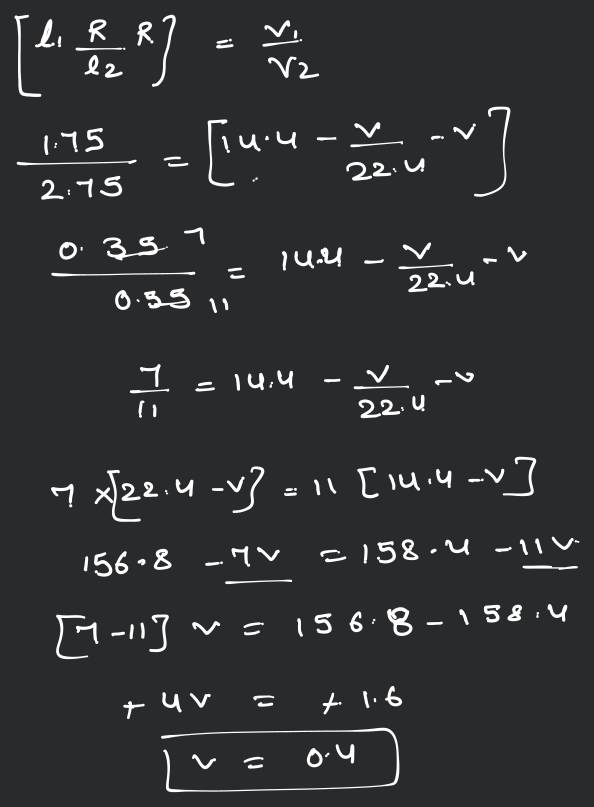 [l₁ R/l₂ R] = V₁/V₂
1.75/2.75 = [14.4 - v/22.4 - v]
0.35 7/0.55 11 = 14.4 - v/22.4 - v
7/11 = 14.4 - v/22.4 - v
7 x[22.4 - v] = 11 [14.4 - v]
156.8 - 7v = 158.4 - 11v
[7-11] v = 156.8 - 158.4
+ 4v = + 1.6
v = 0.4